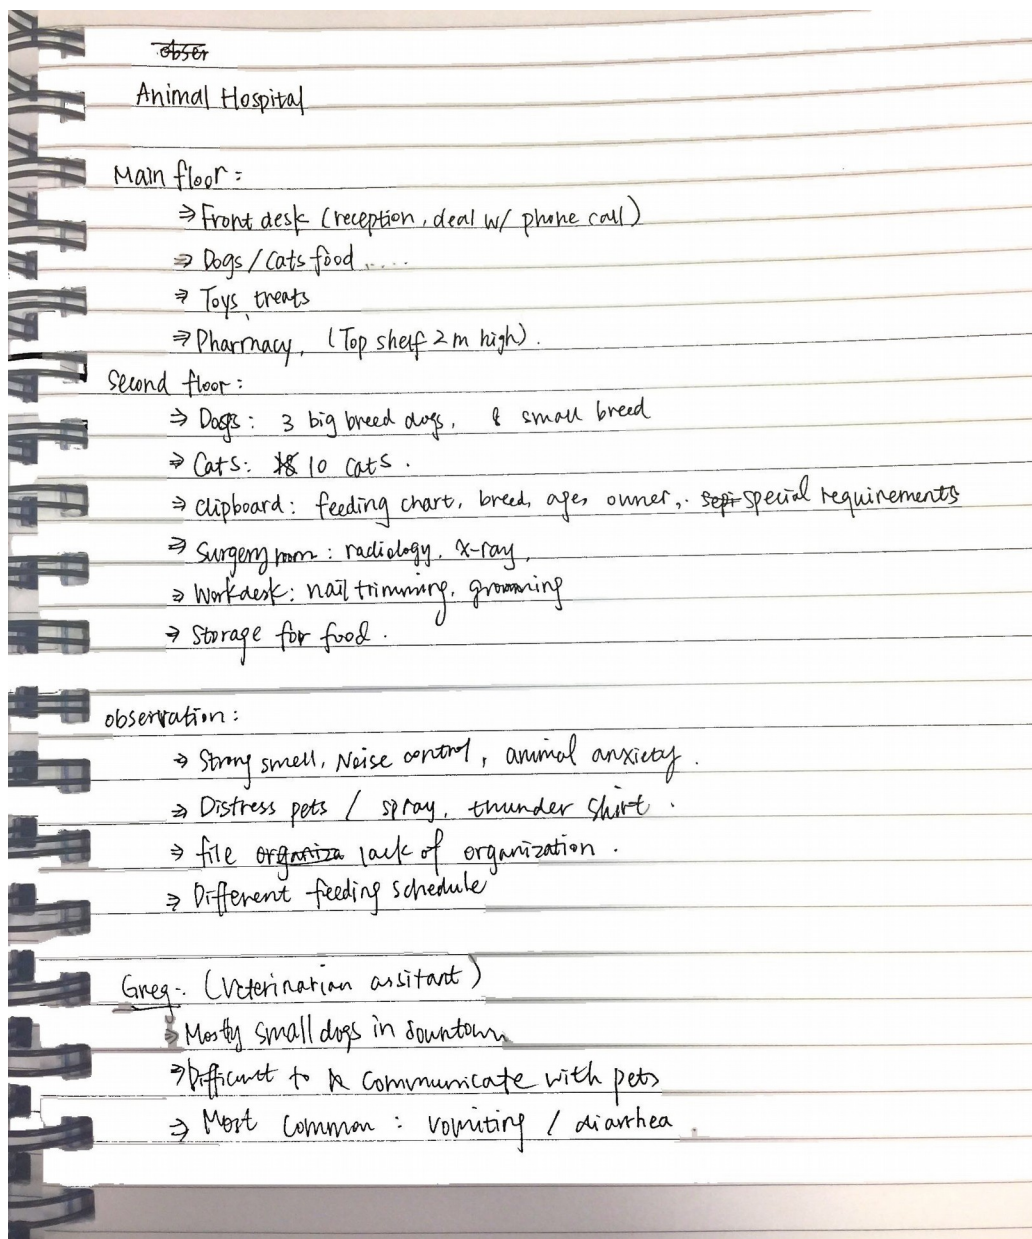 obser
Animal Hospital
Main floor:
⇒ Front desk (reception, deal w/ phone call)
⇒ Dogs/Cats food .....
⇒ Toys, treats
⇒ Pharmacy, (Top shelf 2m high).
Second floor:
⇒ Dogs: 3 big breed dogs, 8 small breed
⇒ Cats: 10 cats.
⇒ Clipboard: feeding chart, breed, age, owner, special requirements
⇒ Surgery room: radiology, X-ray,
⇒ Workdesk: nail trimming, grooming
⇒ Storage for food.
observation:
⇒ Strong smell, Noise control, animal anxiety.
⇒ Distress pets / spray, thunder shirt.
⇒ file organiza lack of organization.
⇒ Different feeding schedule
Greg: (Veterinarian assitant)
⇒ Mostly small dogs in downtown
⇒ Difficult to communicate with pets
⇒ Most common: vomiting / diarrhea.